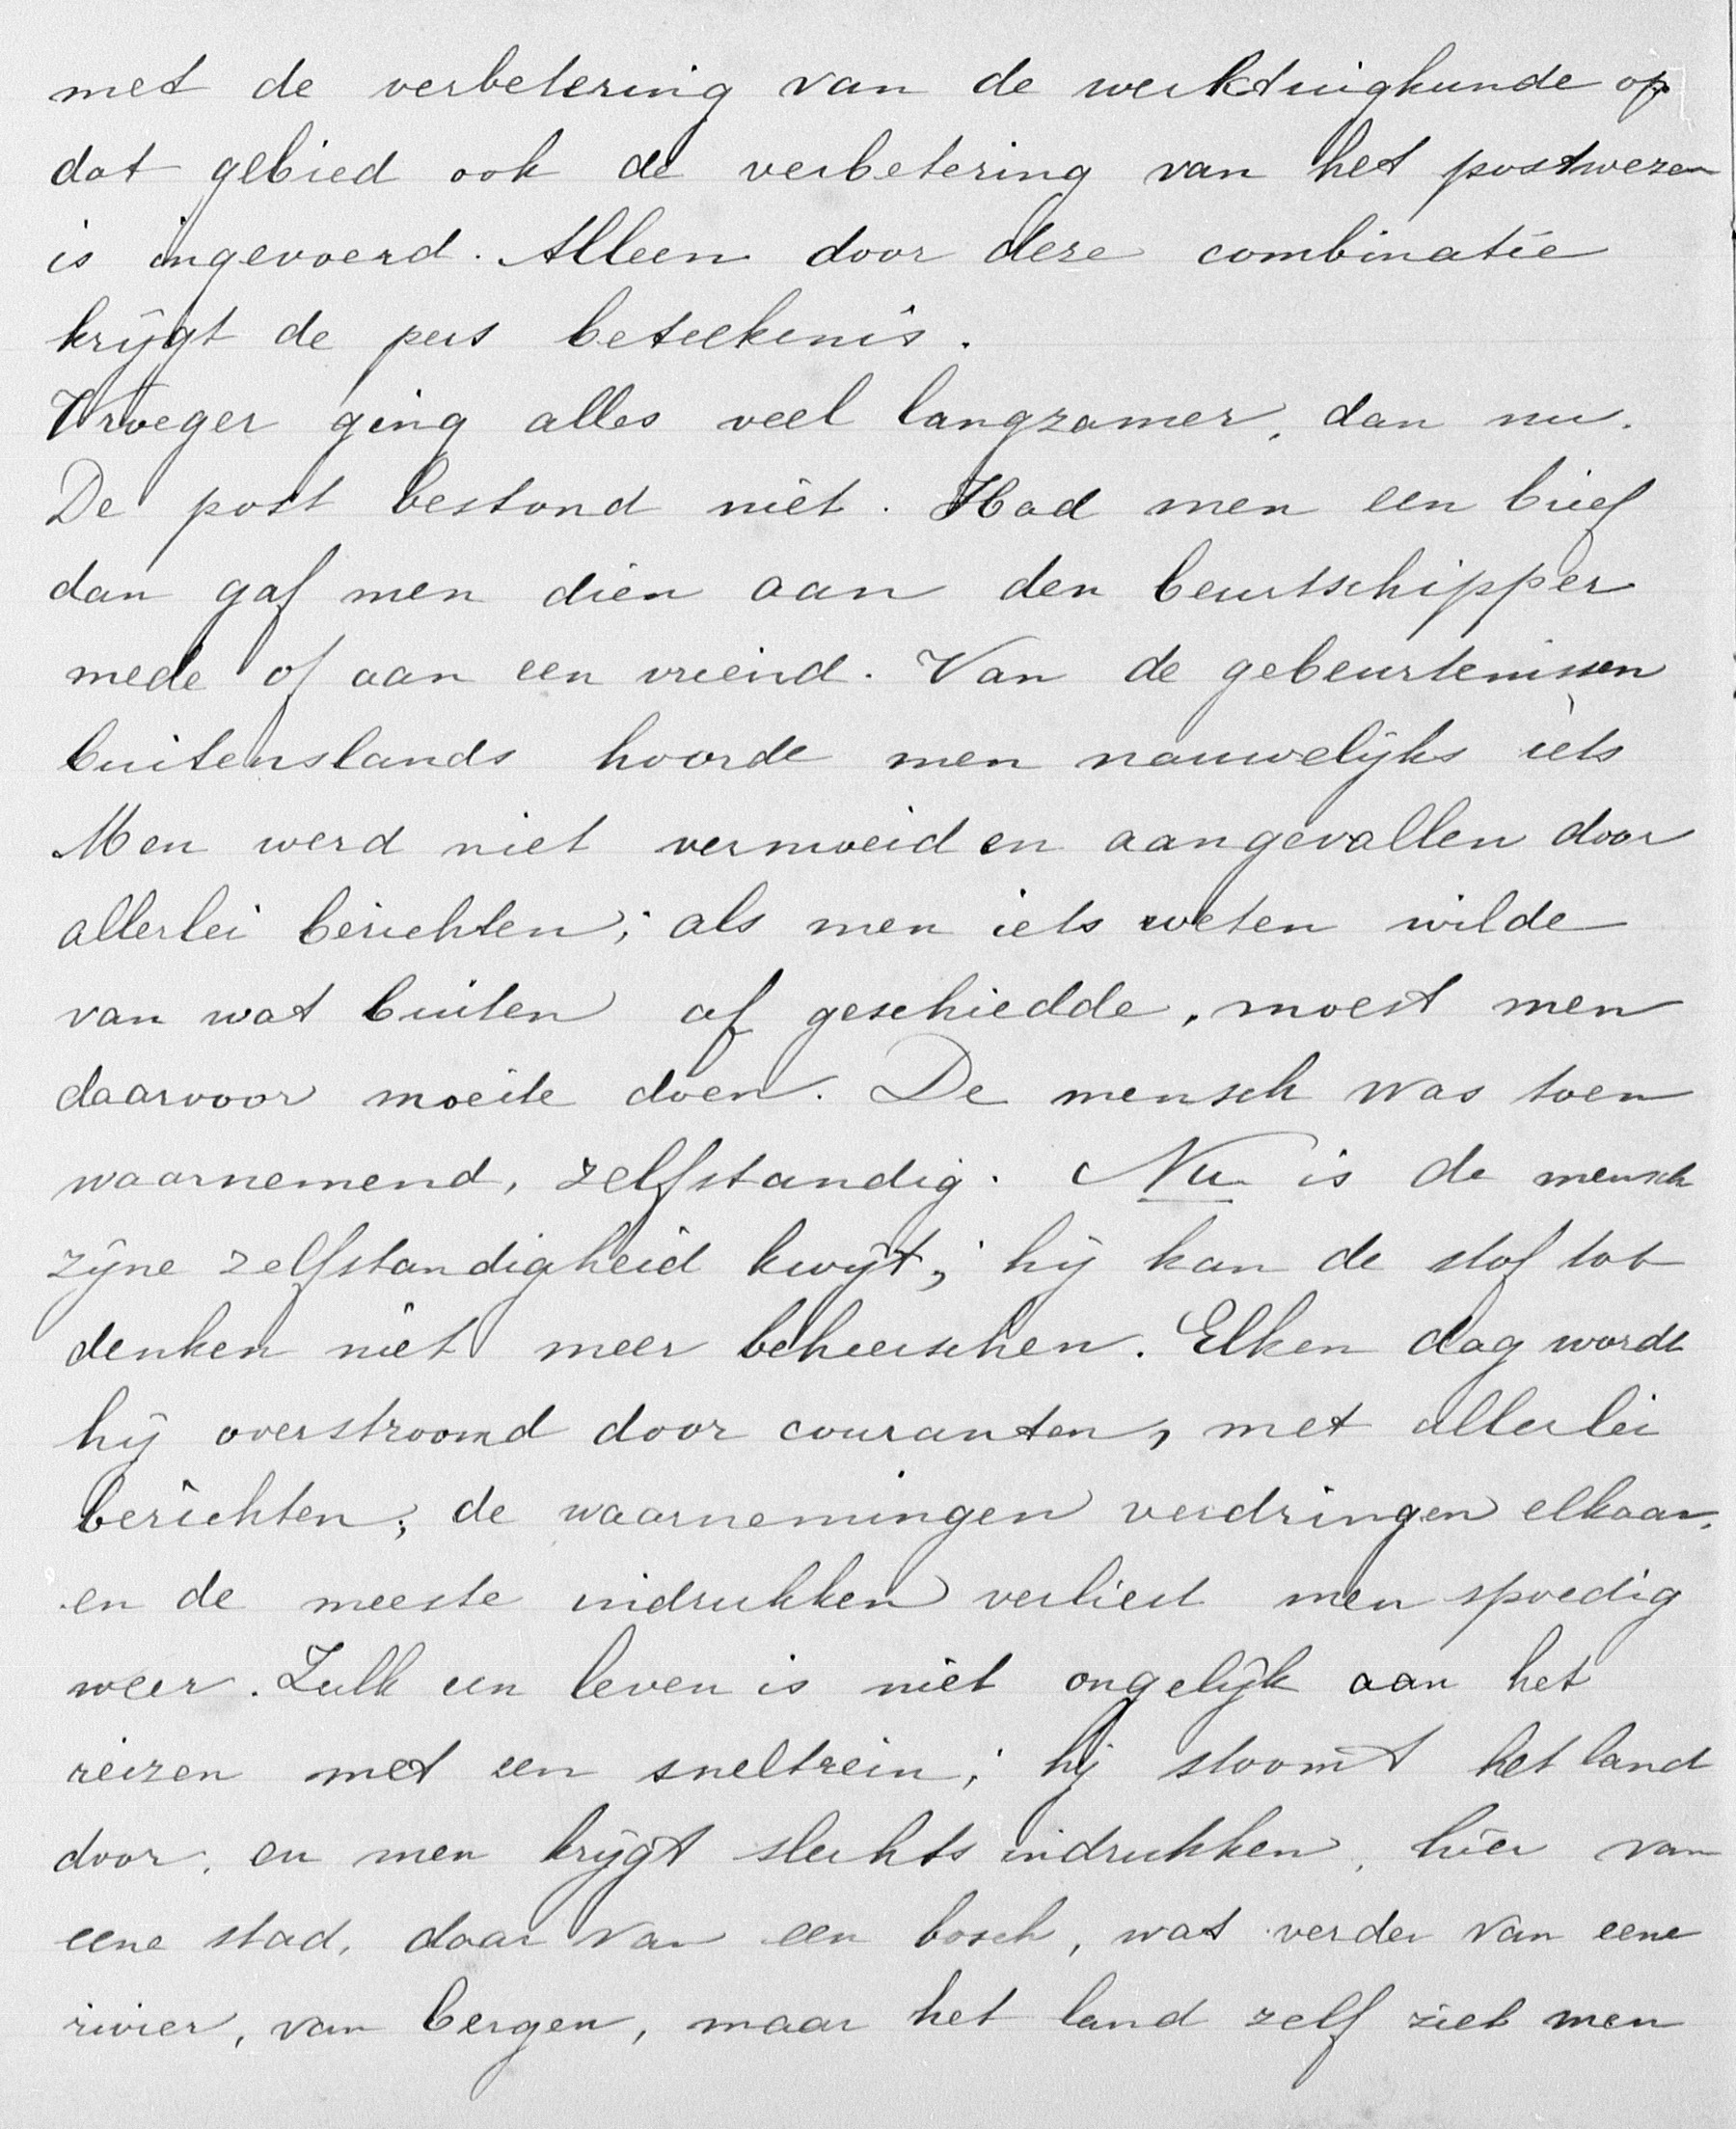 met de verbetering van de werktuigkunde op
dat gebied ook de verbetering van het postwezen
is ingevoerd. Alleen door deze combinatie
krijgt de pers beteekenis.
Vroeger ging alles veel langzamer, dan nu.
De post bestond niet. Had men een brief
dan gaf men dien aan den beurtschipper
mede of aan een vriend. Van de gebeurtenissen
buitenslands hoorde men nauwelijks iets
Men werd niet vermoeid en aangevallen door
allerlei berichten; als men iets weten wilde
van wat buiten af geschiedde, moest men
daarvoor moeite doen. De mensch was toen
waarnemend, zelfstandig. Nu is de mensch
zijne zelfstandigheid kwijt; hij kan de stof tot
denken niet meer beheerschen. Elken dag wordt
hij overstroomd door couranten, met allerlei
berichten; de waarnemingen verdringen elkaar,
en de meeste indrukken verliest men spoedig
weer. Zulk een leven is niet ongelijk aan het
reizen met een sneltrein; hij stoomt het land
door, en men krijgt slechts indrukken, hier van
eene stad, daar van een bosch, wat verder van eene
rivier, van bergen, maar het land zelf ziet men